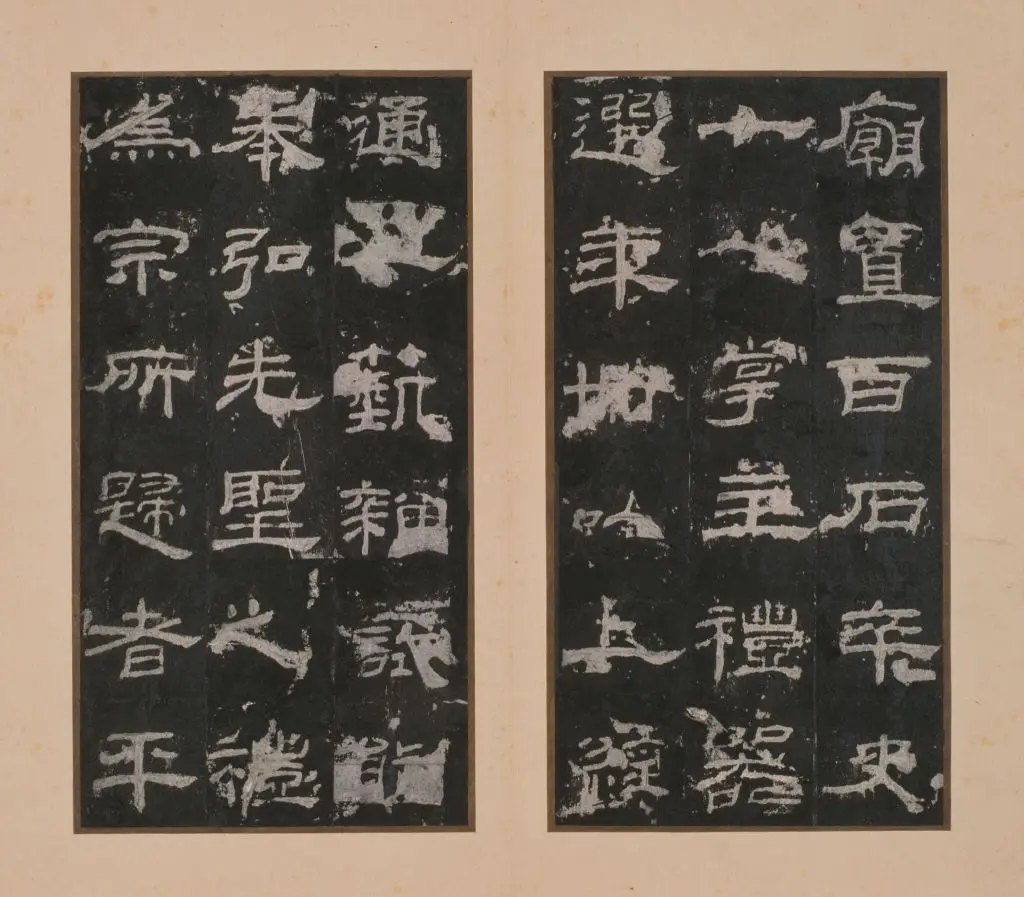 廟置百石卒史
一人掌主禮器
選年卌以上經
通一藝雜試能
奉弘先聖之禮
為宗所歸者平